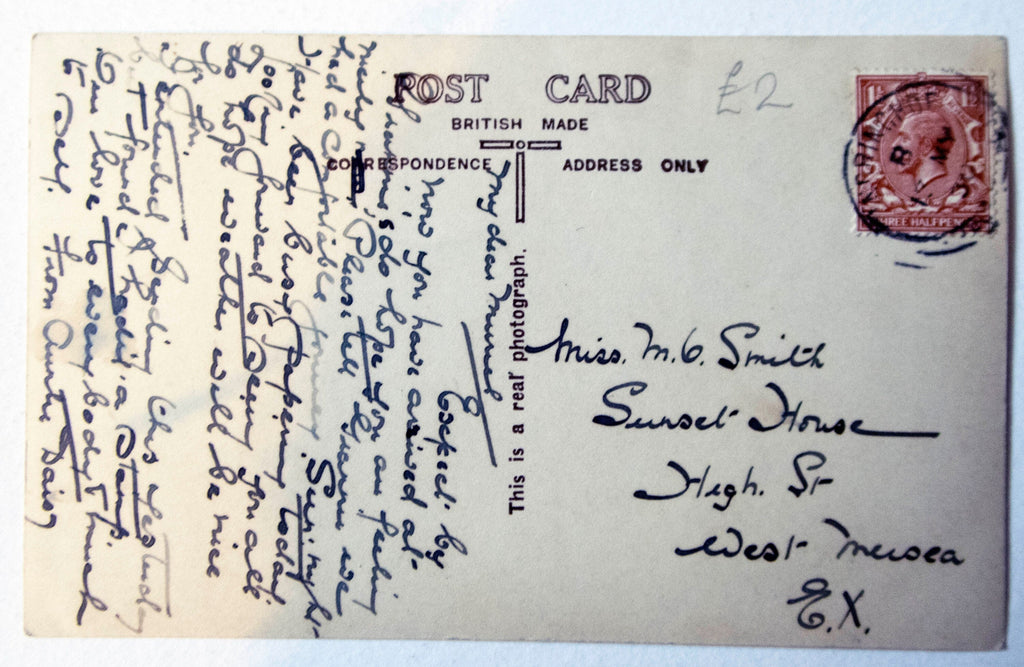 POST CARD
BRITISH MADE
CORRESPONDENCE ADDRESS ONLY
This is a real photograph.
£2
THREE HALFPENCE
My dear Muriel
Expect by
now you have arrived at
& do hope you are feeling
Please tell Mum we
had a comfortable journey. Sunnight
Have been busy papering today
looking forward to seeing you all
do hope weather will be nice
for
I intended sending this yesterday
but found I hadn't a stamp
Give love to everybody & much
to self. From Auntie Daisy
Miss. M. G. Smith
Sunset House
High. St
West Mersea
E.X.